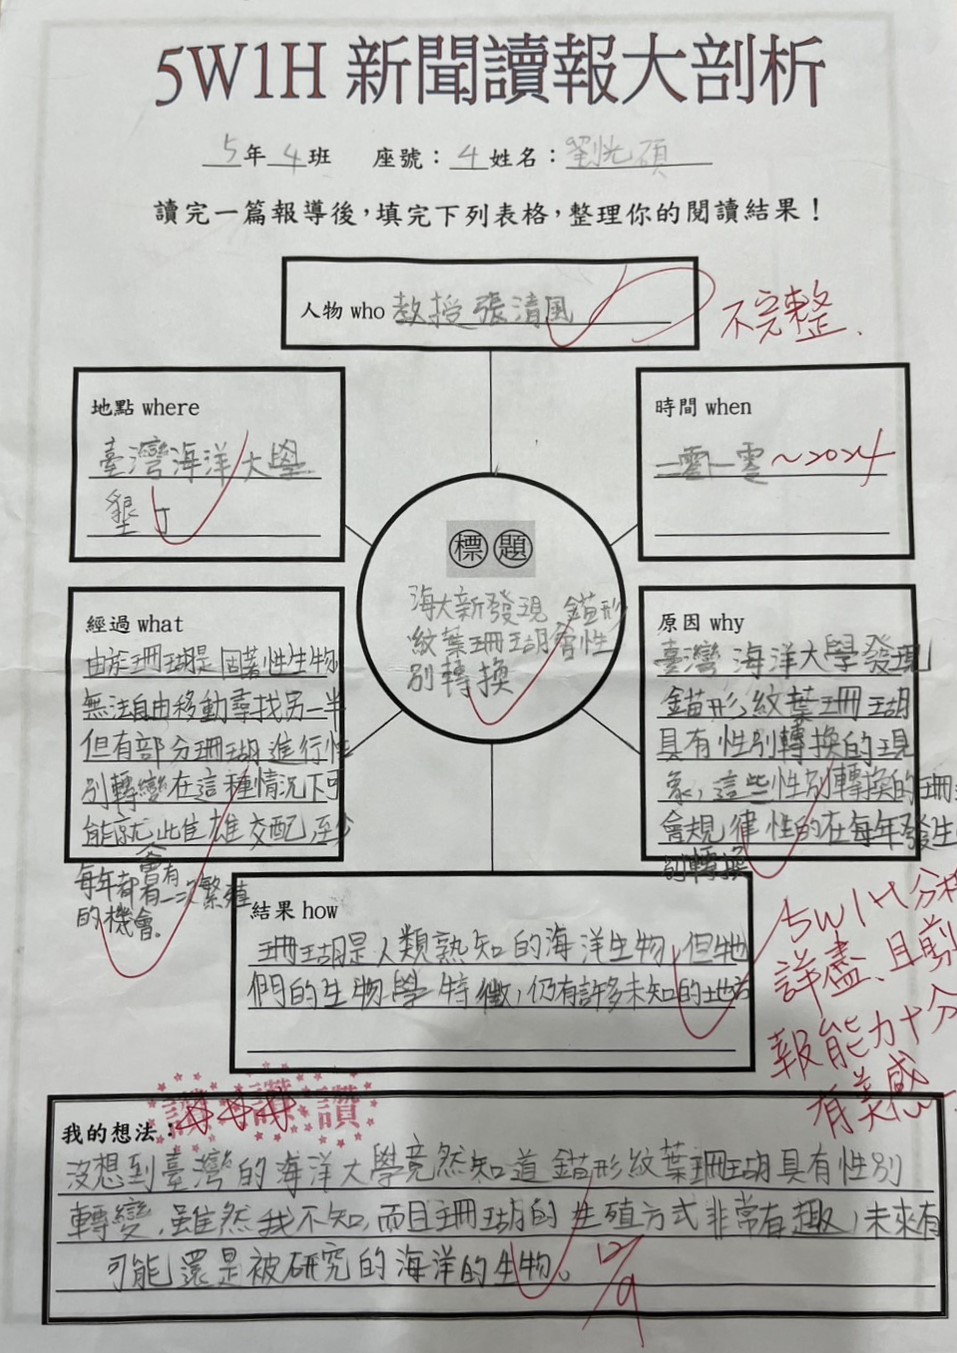 5W1H 新聞讀報大剖析
5年4班 座號：4姓名：劉光碩
讀完一篇報導後，填完下列表格，整理你的閱讀結果！
人物 who 教授張清風
不完整、
地點 where
臺灣海洋大學
墾丁
時間 when
二零一零~2024
標題
海大新發現 錨形
紋葉珊瑚會性
別轉換
經過 what
由於珊瑚是固著性生物
無法自由移動尋找另一半
但有部分珊瑚進行性
別轉變在這種情況下可
能就此雌雄交配 至少
每年都會有一次繁殖
的機會。
原因 why
臺灣海洋大學發現
錨形紋葉珊瑚
具有性別轉換的現
象，這些性別轉換的珊
會規律性的在每年發生
別轉換
結果 how
珊瑚是人類熟知的海洋生物，但牠
們的生物學特徵，仍有許多未知的地方
5W1H分
詳盡、且剪
報能力十分
有美感
讚讚讚
我的想法：
沒想到臺灣的海洋大學竟然知道錨形紋葉珊瑚具有性別
轉變，雖然我不知，而且珊瑚的生殖方式非常有趣，未來有
可能還是被研究的海洋的生物。
12/9